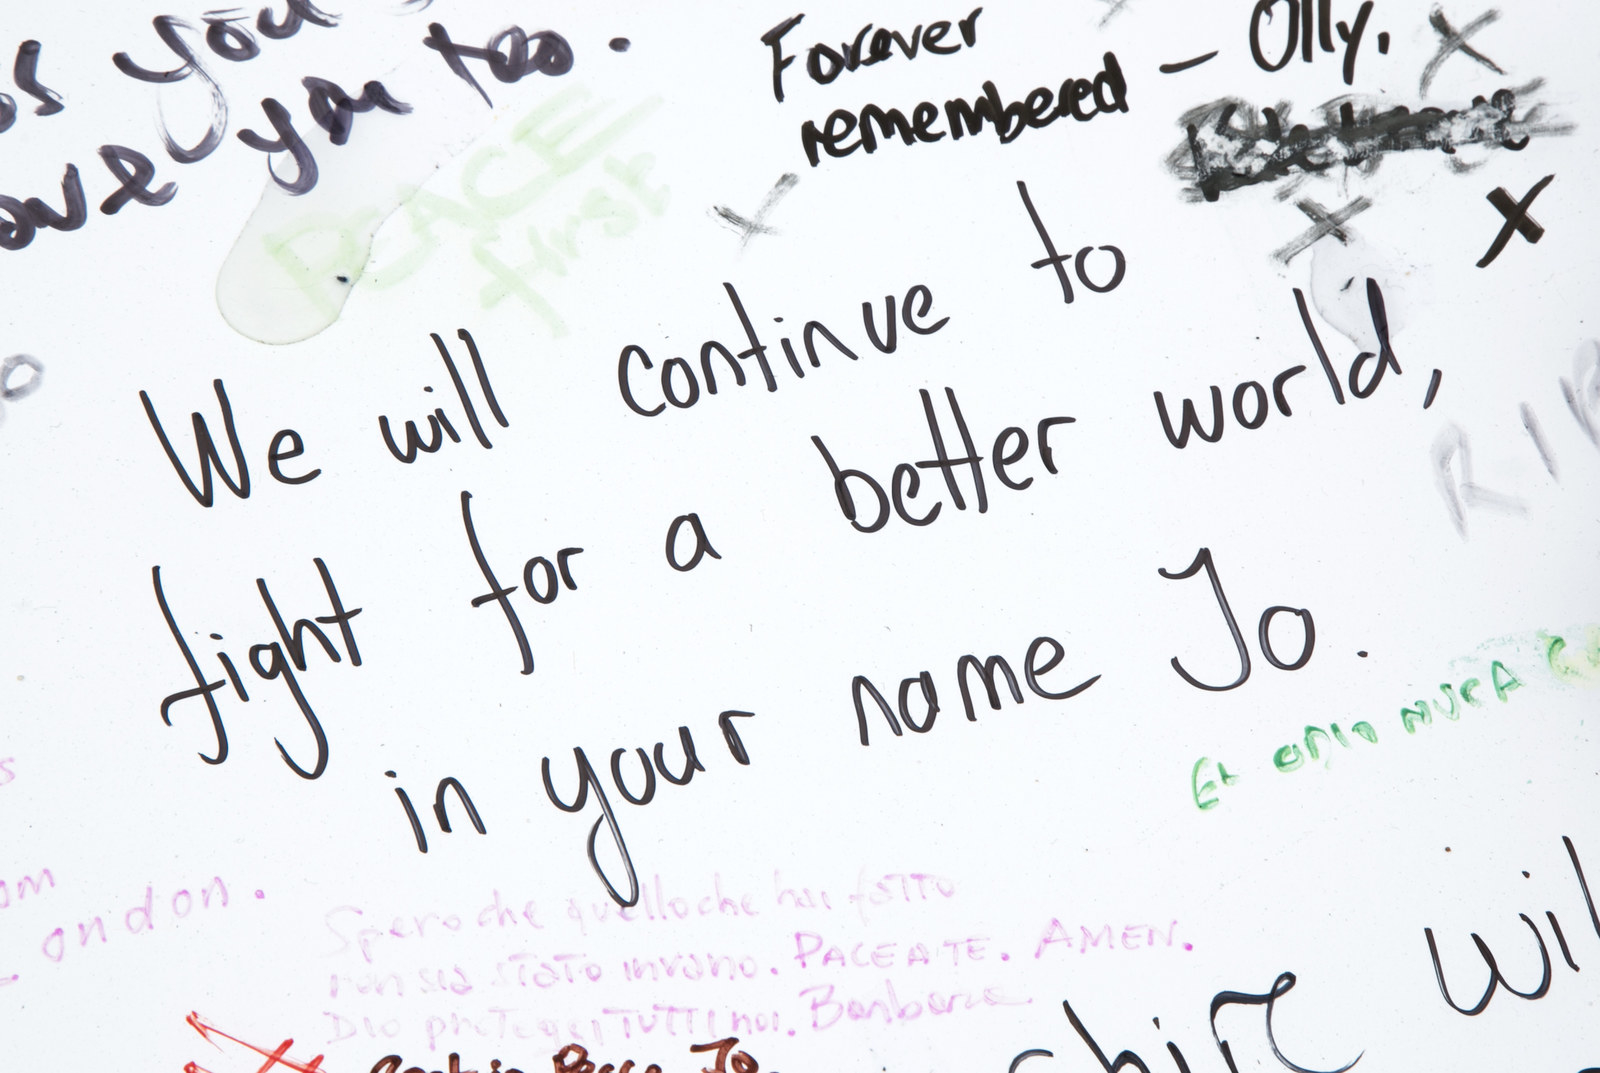 you
you too.
Forever
remembered – Olly.
PEACE
first
We will continue to
fight for a better world,
in your name Jo.
RIP
El odio nunca
London.
Spero che quello che hai fatto
non sia stato invano. PACE A TE. AMEN.
Dio protegga TUTTI noi. Barbara
Rest in Peace Jo